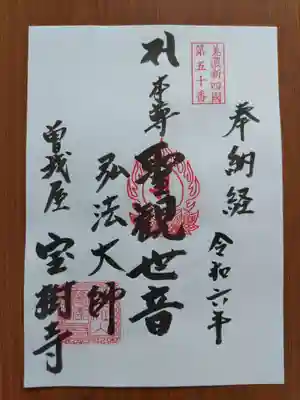 奉納経
令和六年
美濃新四國
第五十番
札本尊聖観世音
弘法大師
曽我屋
宝樹寺